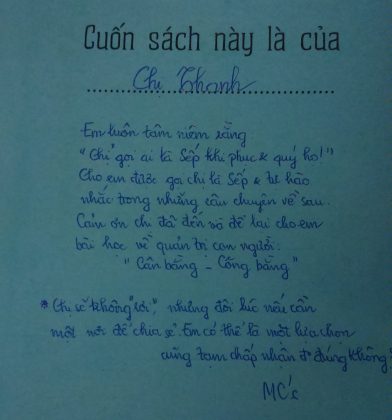 Cuốn sách này là của
Chị Khanh
Em luôn tâm niệm rằng
"Chị gọi ai là Sếp khi phục & quý họ!"
Cho em được gọi chị là Sếp & tự hào
nhắc trong những câu chuyện về sau.
Cảm ơn chị đã đến và để lại cho em
bài học về quản trị con người:
"Cân bằng - Công bằng"
* Chị sẽ không , nhưng đôi lúc nếu cần
một nơi để "chia sẻ" Em có thể là một lựa chọn
cũng tạm chấp nhận đúng không?
MC's